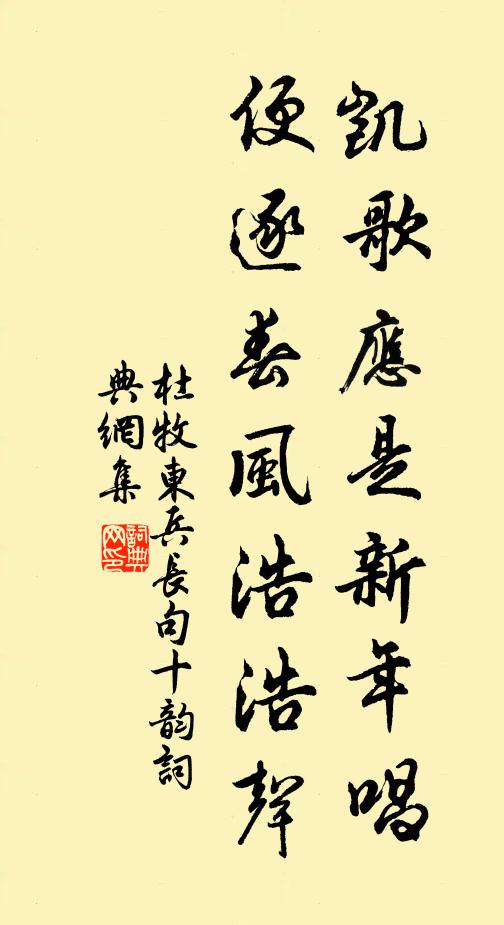 凱歌應是新年唱
便逐春風浩浩聲
杜牧東兵長句十韵詞
典網集
詞典網印